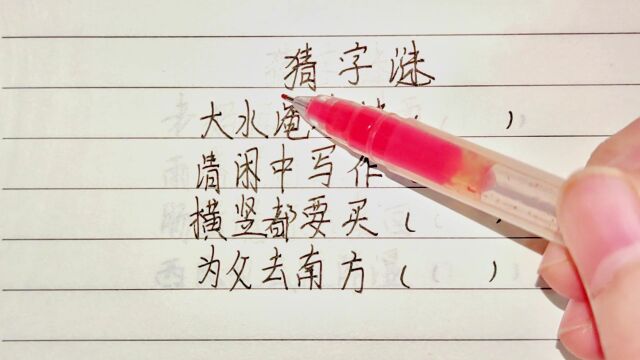 猜字谜
大水淹 ( )
清闲中写作 (
横竖都要买 ( )
为攵去南方 ( )